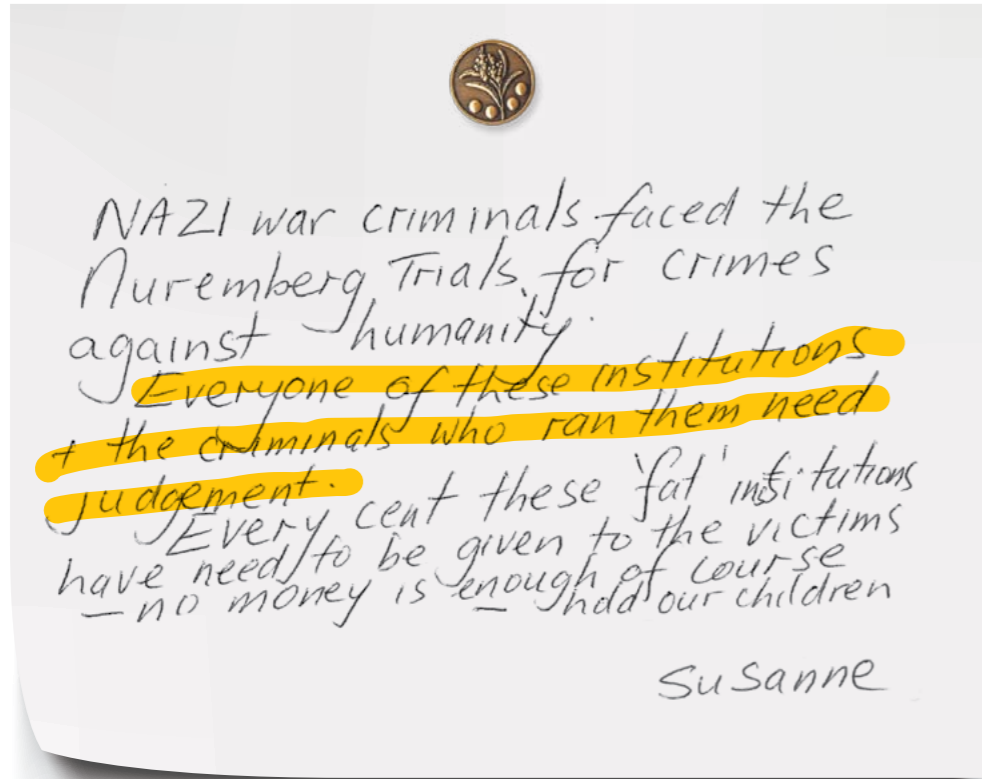 NAZI war criminals faced the
Nuremberg Trials for crimes
against humanity.
Everyone of these institutions
+ the criminals who ran them need
judgement.
Every cent these 'fat' institutions
have need to be given to the victims
– no money is enough of course
– hold our children
Susanne